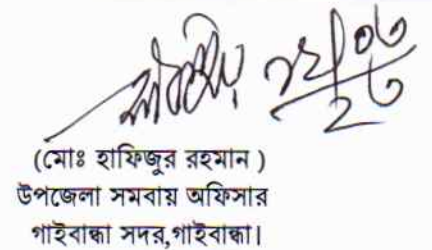 (মোঃ হাফিজুর রহমান )
উপজেলা সমবায় অফিসার
গাইবান্ধা সদর,গাইবান্ধা।